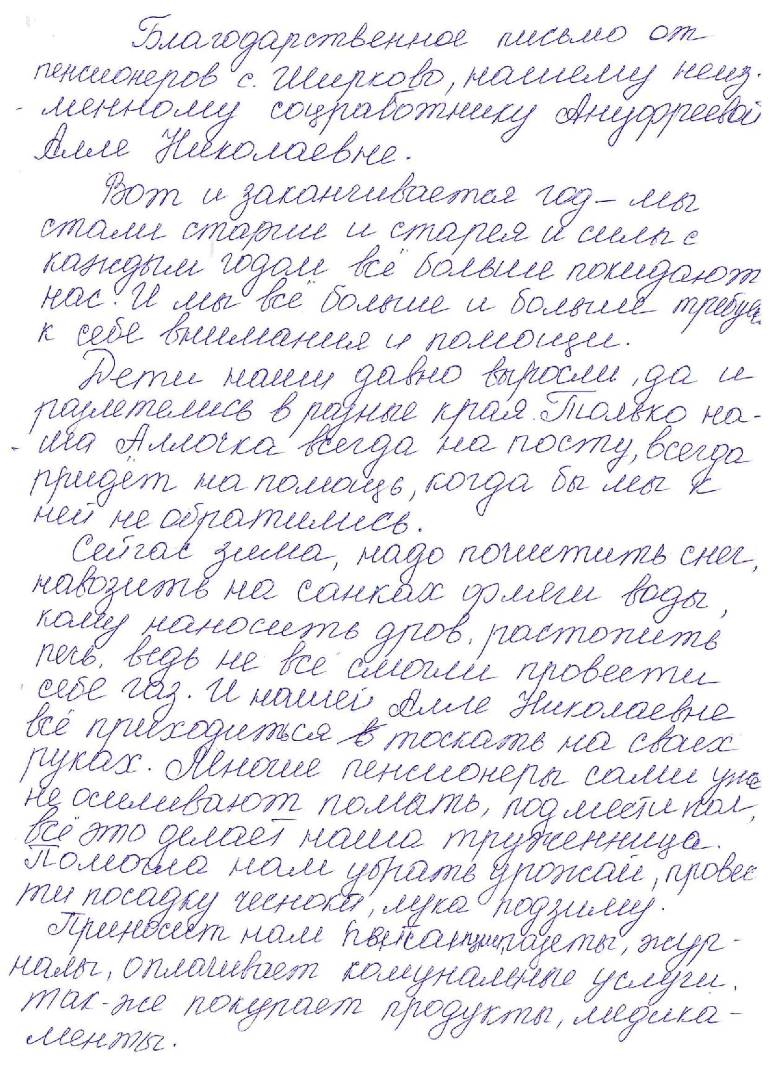 Благодарственное письмо от
пенсионеров с. Ширково, нашему неиз-
менному соцработнику Ануфреевой
Алле Николаевне.
Вот и заканчивается год - мы
стали старше и старея и силы с
каждым годом всё больше покидают
нас. И мы всё больше и больше требуем
к себе внимания и помощи.
Дети наши давно выросли, да и
разлетелись в разные края. Только на-
ша Аллочка всегда на посту, всегда
придёт на помощь, когда бы мы к
ней не обратились.
Сейчас зима, надо почистить снег,
навозить на санках фляги воды,
кому наносить дров, растопить
печь, ведь не все смогли провести
себе газ. И нашей Алле Николаевне
всё приходиться тоскать на своих
руках. Многие пенсионеры сами уже
не осиливают помыть, подмести пол,
всё это делает наша труженница.
Помогла нам убрать урожай, провес
ти посадку чеснока, лука подзиму.
Приносит нам газеты, жур-
налы, оплачивает комунальные услуги.
так-же покупает продукты, медика-
менты.